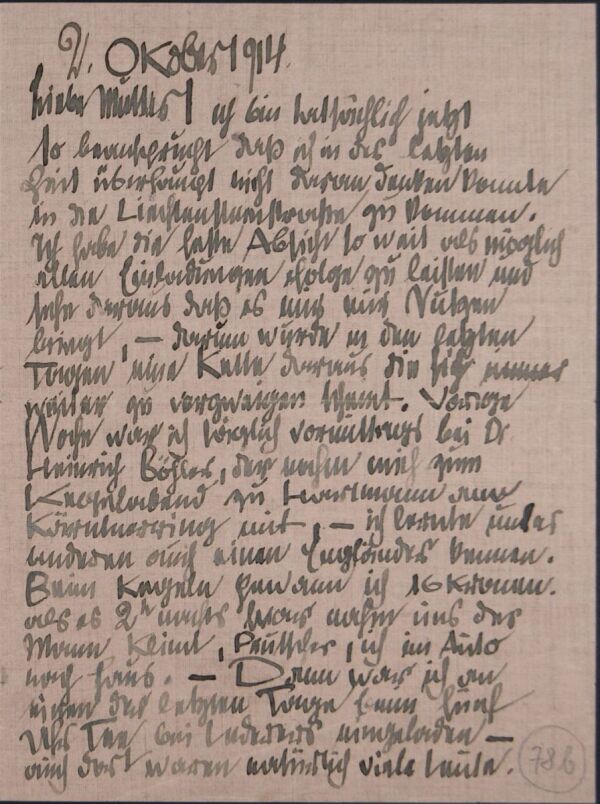 2. Oktober 1914.
Liebe Mutter! ich bin tatsächlich jetzt
so beansprucht daß ich in der letzten
Zeit überhaupt nicht daran denken konnte
in die Liechtensteinstrasse zu kommen.
Ich habe die feste Absicht so weit als möglich
allen Einladungen folge zu leisten und
sehe daraus daß es mir nur Nutzen
bringt, — darum wurde in den letzten
Tagen eine Kette daraus die sich immer
weiter zu verzweigen scheint. Vorige
Woche war ich täglich vormittags bei Dr
Heinrich Böhler, der nahm mich zum
Kegelabend zu Hartmann am
Kärntnerring mit, — ich lernte unter
anderen auch einen Engländer kennen.
Beim Kegeln gewann ich 16 Kronen.
als es 2h nachts war nahm uns der
Mann Klimt, ich im Auto
nach Haus. — Dann war ich an
einen der letzten Tage beim fünf
Uhr Tee bei Lederers eingeladen —
auch dort waren natürlich viele Leute.
786